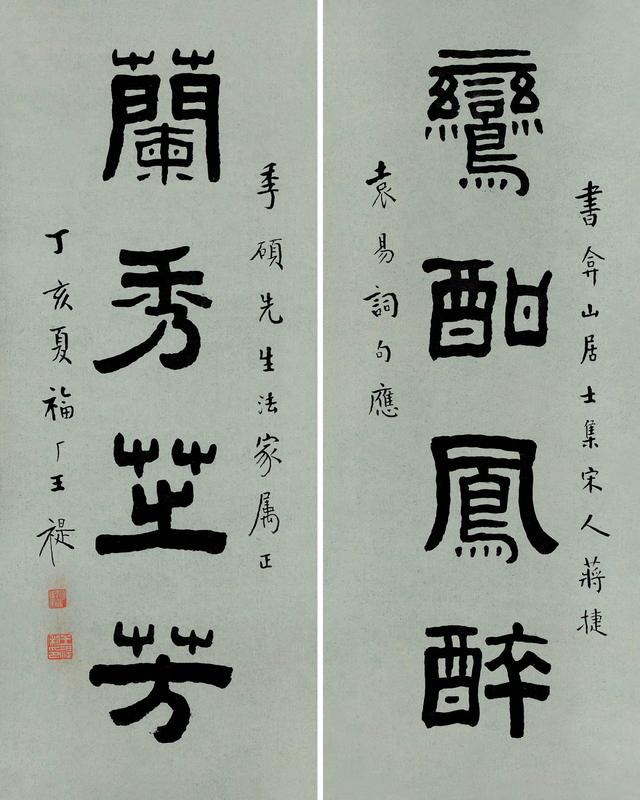 鸞酣鳳醉
書弇山居士集宋人蔣捷
袁易詞句應
蘭秀芝芳
季碩先生法家属正
丁亥夏福厂王禔